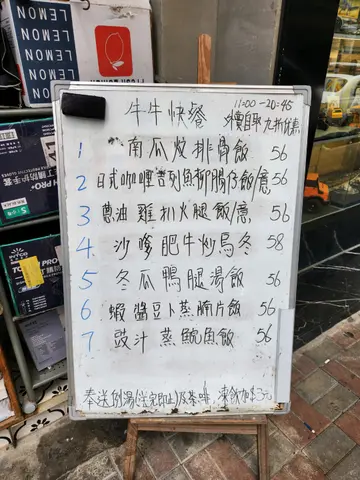 LEMON
LEMON
LEMON
LEMON
牛牛快餐
11:00-20:45
外賣自取九折優惠
1 南瓜炆排骨飯 56
2 日式咖喱吉列魚柳腸仔飯/意 56
3 蔥油雞扒火腿飯/意 56
4 沙嗲肥牛炒烏冬 58
5 冬瓜鴨腿湯飯 56
6 蝦醬豆卜蒸腩片飯 56
7 豉汁蒸鯇魚飯 56
奉送例湯(送完即止)及茶啡,凍飲加$3元